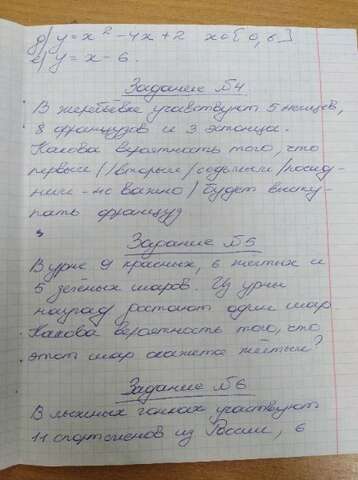 д) y = x² - 4x + 2 x∈[0,6]
е) y = x - 6.
Задание №4
В жеребьёвке участвуют 5 немцев,
8 французов и 3 эстонца.
Какова вероятность того, что
первым / вторым / седьмым / послед-
ним - не важно / будет высту-
пать француз
Задание №5
В урне 9 красных, 6 жёлтых и
5 зелёных шаров. Из урны
наугад достают один шар
Какова вероятность того, что
этот шар окажется жёлтым?
Задание №6
В лыжных гонках участвуют
11 спортсменов из России, 6